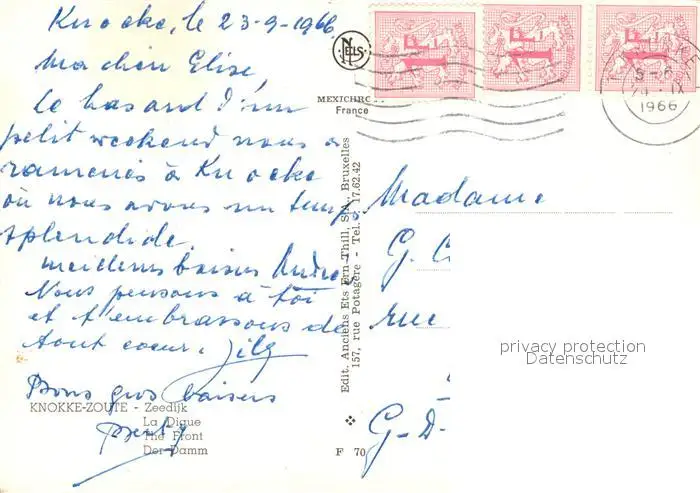 Knocke, le 23-9-1966
Ma chère Elise,
le hasard d'un
petit weekend nous a
ramenés à Knocke
où nous avons un temps
splendide.
meilleurs baisers
Nous pensons à toi
et t'embrassons de
tout coeur.
Bons gros baisers
KNOKKE-ZOUTE - Zeedijk
La Digue
The Front
Der Damm
NELS
MEXICHRO
France
Edit. Anciens Ets Ern-Thill, S.A., Bruxelles
157, rue Potagère - Tel. 17.62.42
F 70
1F
1F
1F
1966
Madame
G.
rue
G-D-
privacy protection
Datenschutz